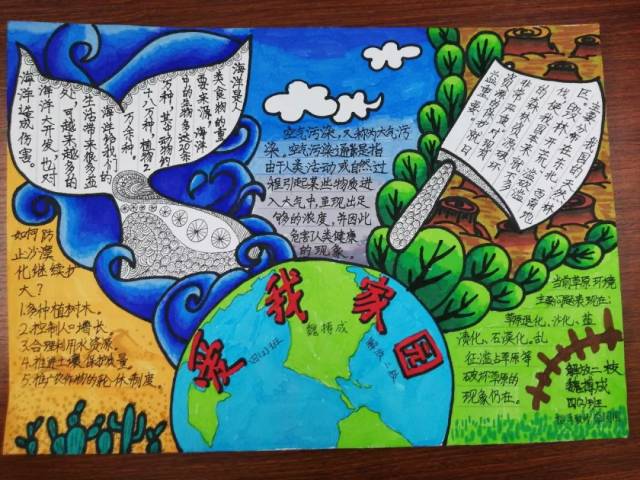 海洋是人
类食物的重
要来源,海洋
中的生物多达20余
万种,其中动物约
十八万种,植物2
万余种。
海洋给我们的
生活带来很多益
处,可越来越多的
海洋大开发,也对
海洋造成伤害。
空气污染,又称为大气污
染,空气污染通常是指
由于人类活动或自然过
程引起某些物质进
入大气中,呈现出足
够的浓度,并因此
危害人类健康
的现象。
我国的天然林
主要分布在东北
如何防
止沙漠
化继续扩
大?
1.多种植树木。
2.控制人口增长。
3.合理利用水资源。
4.推进土壤保护质量
5.推广农作物的轮休制度。
爱我家园
四(2)班
魏搏成
解放二校
当前草原环境
主要问题表现在:
草原退化、沙化、盐
渍化、石漠化、乱
征滥占草原等
破坏草原的
现象仍在。
解放二校
魏搏成
四(2)班